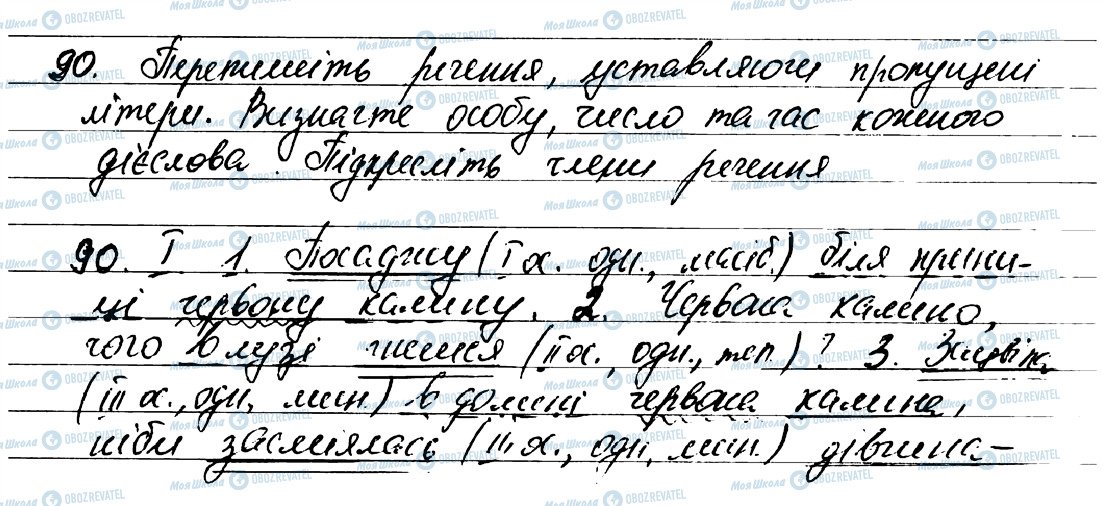 90. Перепишіть речення, уставляючи пропущені
літери. Визначте особу, число та час кожного
дієслова. Підкресліть члени речення
90. І 1. Посаджу (І ос. одн., майб.) біля крини-
ці червону калину. 2. Червона калино,
чого в лузі гнешся (ІІ ос., одн., теп.)? 3.
(ІІІ ос., одн, мин.) в долині червона калина,
ніби засміялась (ІІІ ос., одн, мин.) дівчина-